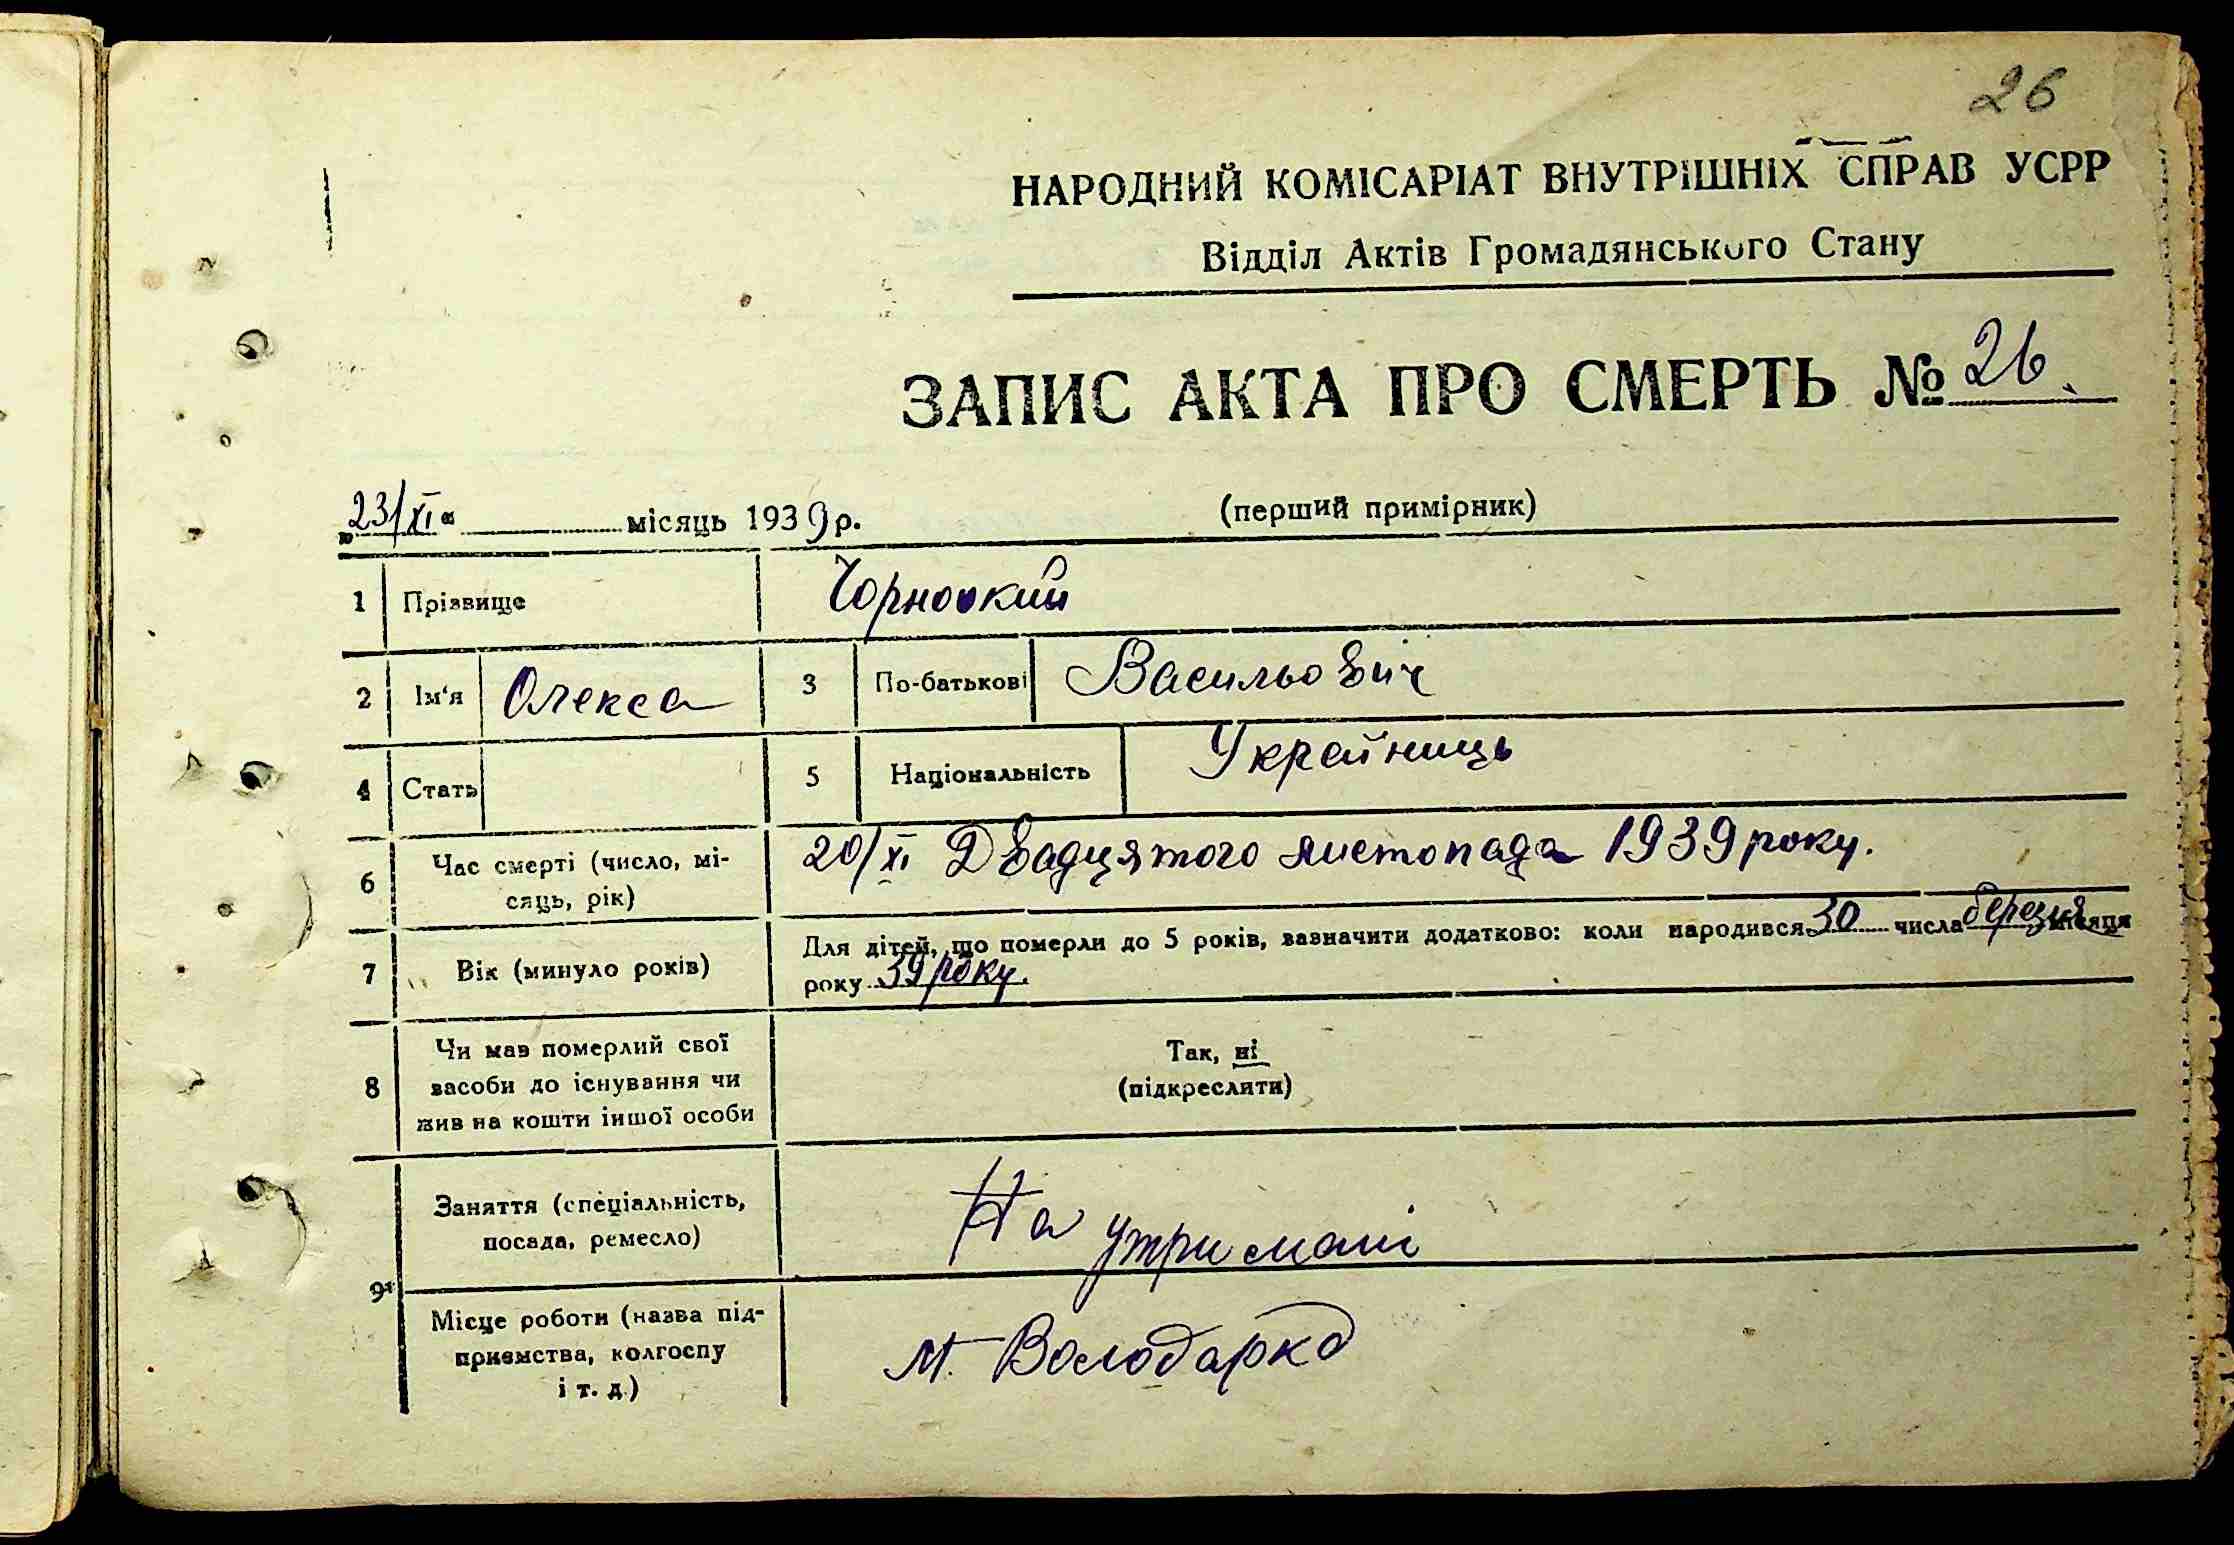 26
НАРОДНИЙ КОМІСАРІАТ ВНУТРІШНІХ СПРАВ УСРР
Відділ Актів Громадянського Стану
ЗАПИС АКТА ПРО СМЕРТЬ № 26.
„23/XI“ місяць 1939 р. (перший примірник)
1 Прізвище
2 Ім'я Олекса 3 По-батькові Васильович
4 Стать 5 Національність Украйниць
6 Час смерті (число, мі-
сяць, рік) 20/XI Двадцятого листопада 1939 року.
7 Вік (минуло років) Для дітей, що померли до 5 років, зазначити додатково: коли народився 30 числа березня місяця
року 39 року.
8 Чи мав померлий свої
засоби до існування чи
жив на кошти іншої особи Так, ні
(підкреслити)
9 Заняття (спеціальність,
посада, ремесло) На утримані
Місце роботи (назва під-
приємства, колгоспу
і т. д.) м. Володарка